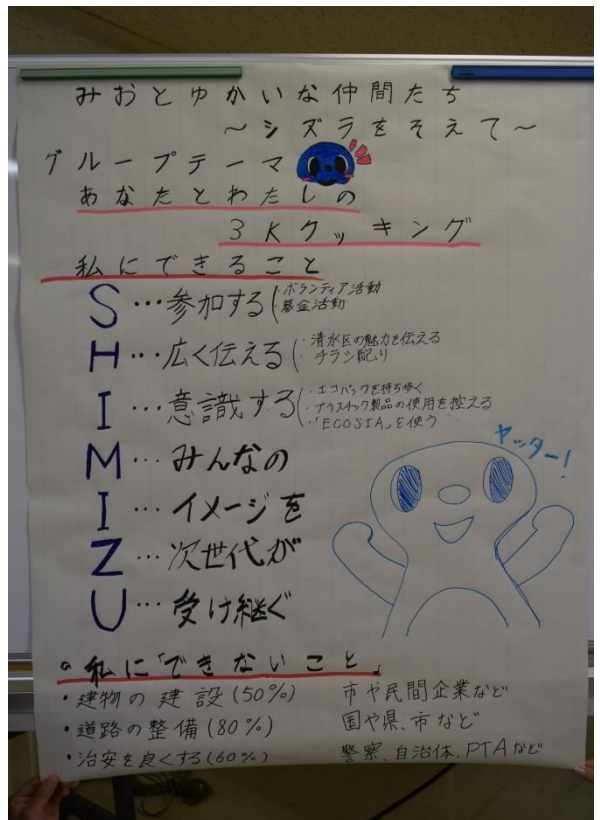 みおとゆかいな仲間たち
～シズラをそえて～
グループテーマ
あなたとわたしの
3Kクッキング
私にできること
S…参加する(・ボランティア活動
・募金活動
H…広く伝える(・清水区の魅力を伝える
・チラシ配り
I…意識する(・エコバックを持ち歩く
・プラスチック製品の使用を控える
・「ECOSIA」を使う
ヤッター!
M…みんなの
I…イメージを
Z…次世代が
U…受け継ぐ
。私に「できないこと」
・建物の建設(50%) 市や民間企業など
・道路の整備(80%) 国や県、市など
・治安を良くする(60%) 警察、自治体、PTAなど